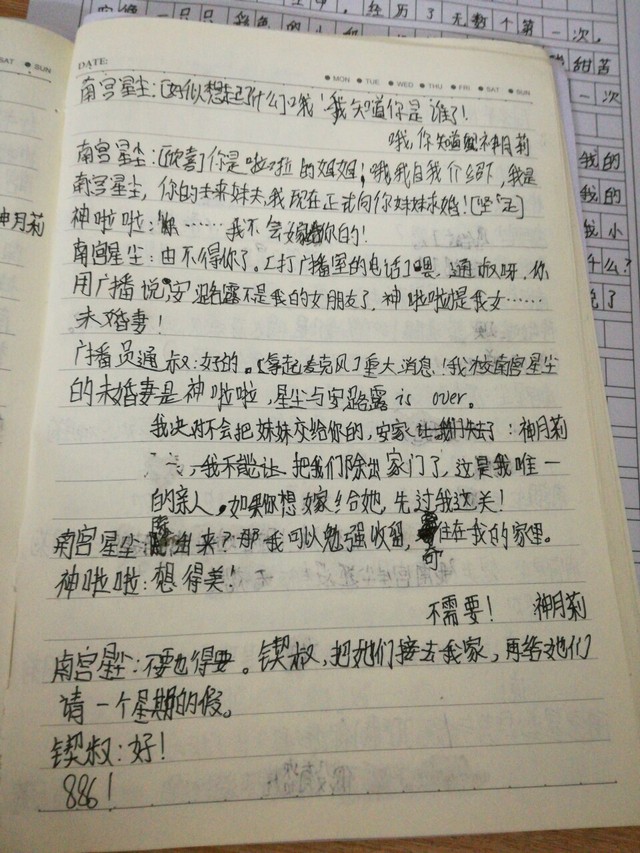 DATE:
MON TUE WED THU FRI SAT SUN
南宫星尘:[好似想起了什么]哦!我知道你是谁了!
哦,你知道 神月莉
南宫星尘:[欣喜]你是啦啦的姐姐;哦我自我介绍下,我是
南宫星尘,你的未来妹夫,我现在正式向你妹妹求婚![坚定]
神啦啦:你……我不会嫁给你的!
南宫星尘:由不得你了。[打广播室的电话]喂,通叔呀,你
用广播说,安路露不是我的女朋友了,神啦啦是我女……
未婚妻!
广播员通叔:好的。[拿起麦克风]重大消息!我校南宫星尘
的未婚妻是神啦啦,星尘与安路露 is over。
我决对不会把妹妹交给你的,安家 :神月莉
我不能让 把我们除出家门了,这是我唯一
的亲人,如果你想嫁给她,先过我这关!
南宫星尘: 出来?那我可以勉强收留, 住在我的家里。
神啦啦:想得美!
不需要! 神月莉
南宫星尘:不要也得要。锲叔,把她们接去我家,再给她们
请一个星期的假。
锲叔:好!
886!
SAT SUN
神月莉
经历了无数个第一次,
甜苦
一次
我的
我的
我小
什么?
说了